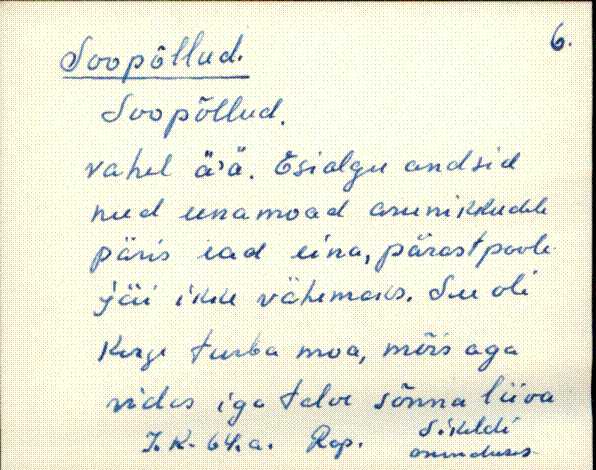 Soopõllud. 6.
Soopõllud.
vahel ä'ä. Esialgu andsid
nud uuna moad asunikkudele
päris ead eina, pärastpoole
jäi ikke vähemaks. See oli
Kerge turba moa, mõis aga
vidas iga talve sõnna liiva
J. K. 64. a. Rap. Sikeldi
asunduses